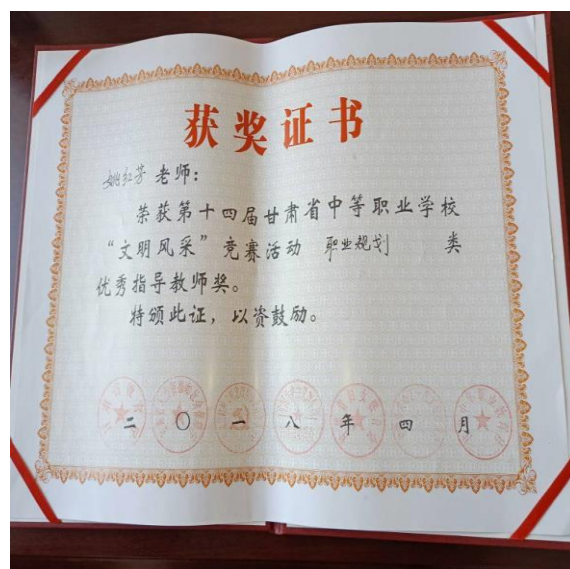 获奖证书
姚红芳 老师：
荣获第十四届甘肃省中等职业学校
“文明风采”竞赛活动 职业规划 类
优秀指导教师奖。
特颁此证，以资鼓励。
二〇一八年四月